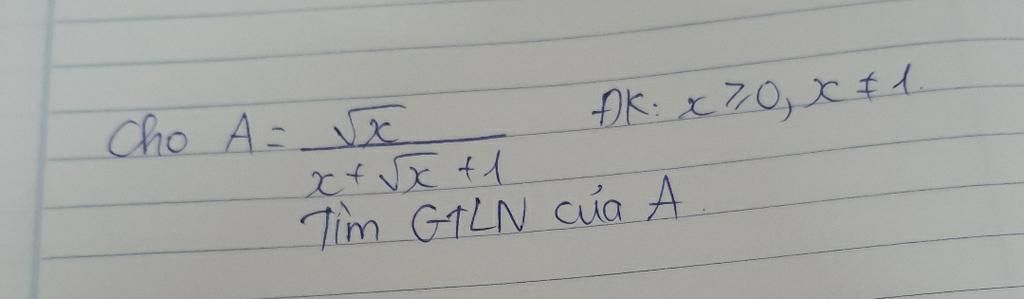 Cho A = √x / (x + √x + 1) ĐK: x ≥ 0, x ≠ 1.
Tìm GTLN của A.